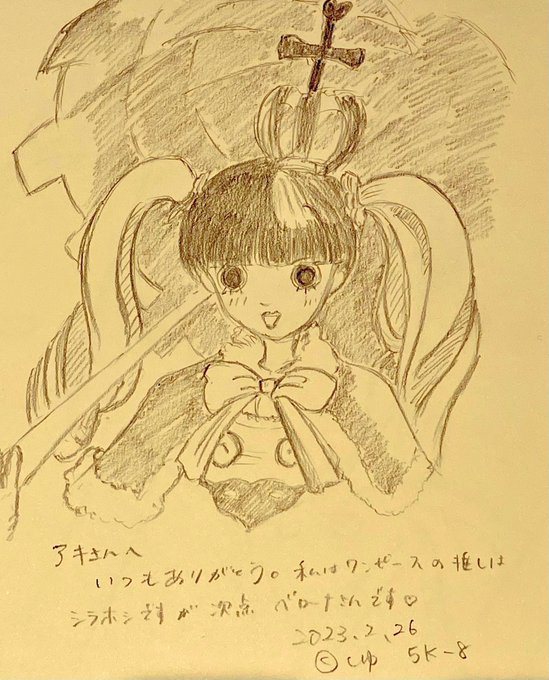 アキさんへ
いつもありがとう。私はワンピースの推しは
シラホシですが次点 ペローナさんです♡
2023.2.26
©しゆ 5K-8